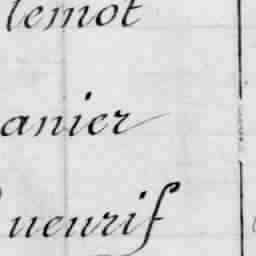 lemot
anier
ueurif